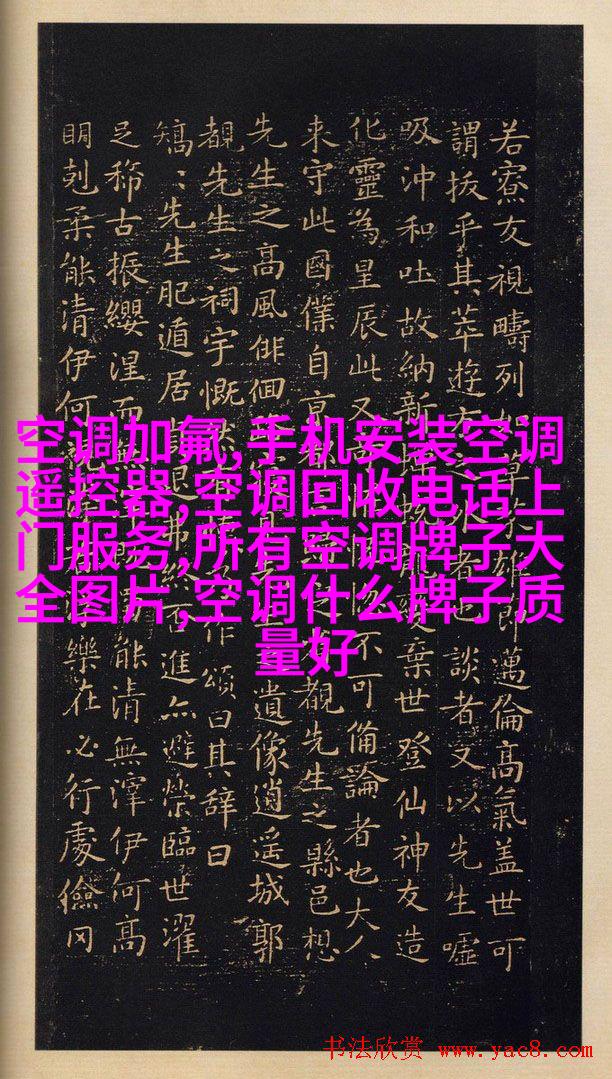 若寮友視疇列草芥雄節邁倫髙氣盖世可
謂拔乎其萃逰方外者也談者又以先生嘘
吸沖和吐故納新變棄世登仙神友造
化靈為星辰此又不可俻論者也大人
来守此國僕自京覩先生之縣邑想
先生之髙風俳佪遺像逍遥城郭
覩先生之祠宇慨作頌曰其辭曰
矯:先生肥遁居貞退弗終否進亦避榮臨世濯
足稀古振纓涅而無能清無滓伊何髙
明剋柔能清伊何樂在必行處儉罔
空调加氟,手机安装空调
遥控器,空调回收电话上
门服务,所有空调牌子大
全图片,空调什么牌子质
量好
书法欣赏 www.yac8.com